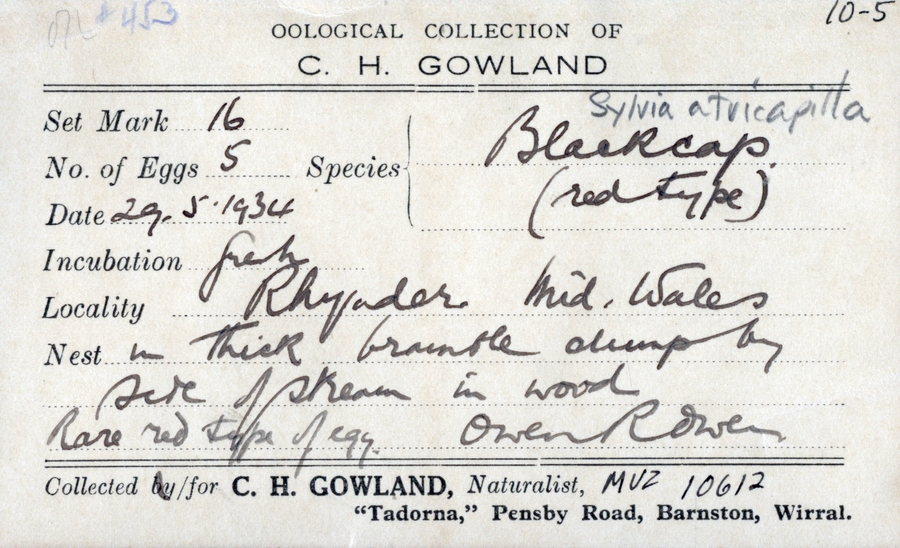 #453
10-5
OOLOGICAL COLLECTION OF
C. H. GOWLAND
Sylvia atricapilla
Set Mark 16
No. of Eggs 5 Species Blackcap.
(red type)
Date 29.5.1934
Incubation fresh
Locality Rhayader. Mid. Wales
Nest in thick bramble clump by
side of stream in wood
Rare red type of egg. Owen R Owen
Collected by/for C. H. GOWLAND, Naturalist, MVZ 10612
"Tadorna," Pensby Road, Barnston, Wirral.